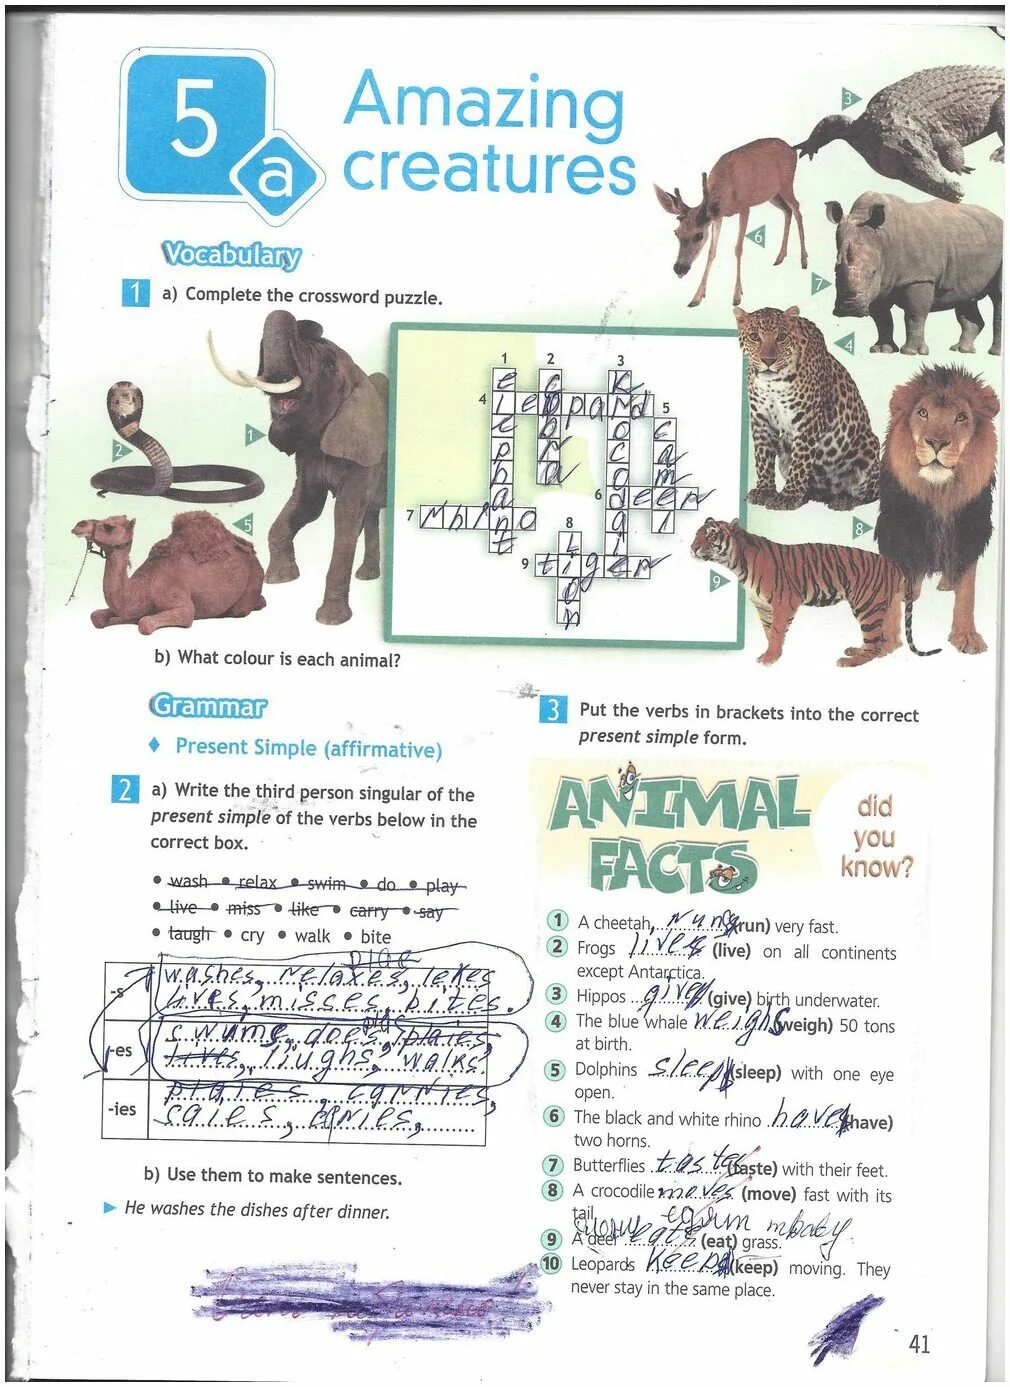 5
a
Amazing
creatures
Vocabulary
1 a) Complete the crossword puzzle.
1
2
3
4
5
6
7
8
9
1
2
3
4 leopard
5
elephant
cobra
crocodile
camel
6 deer
7 rhino
8
lion
9 tiger
b) What colour is each animal?
Grammar
♦ Present Simple (affirmative)
2 a) Write the third person singular of the
present simple of the verbs below in the
correct box.
• wash • relax • swim • do • play
• live • miss • like • carry • say
• laugh • cry • walk • bite
-s washes, relaxes, likes
lives, misses, bites.
-es swims, does,
walks.
-ies carries,
saies, cries,
b) Use them to make sentences.
► He washes the dishes after dinner.
3 Put the verbs in brackets into the correct
present simple form.
ANIMAL
FACTS
did
you
know?
1 A cheetah runs (run) very fast.
2 Frogs live (live) on all continents
except Antarctica.
3 Hippos give (give) birth underwater.
4 The blue whale weighs (weigh) 50 tons
at birth.
5 Dolphins sleep (sleep) with one eye
open.
6 The black and white rhino have (have)
two horns.
7 Butterflies taste (taste) with their feet.
8 A crocodile moves (move) fast with its
tail.
9 A deer eats (eat) grass.
10 Leopards keep (keep) moving. They
never stay in the same place.
41